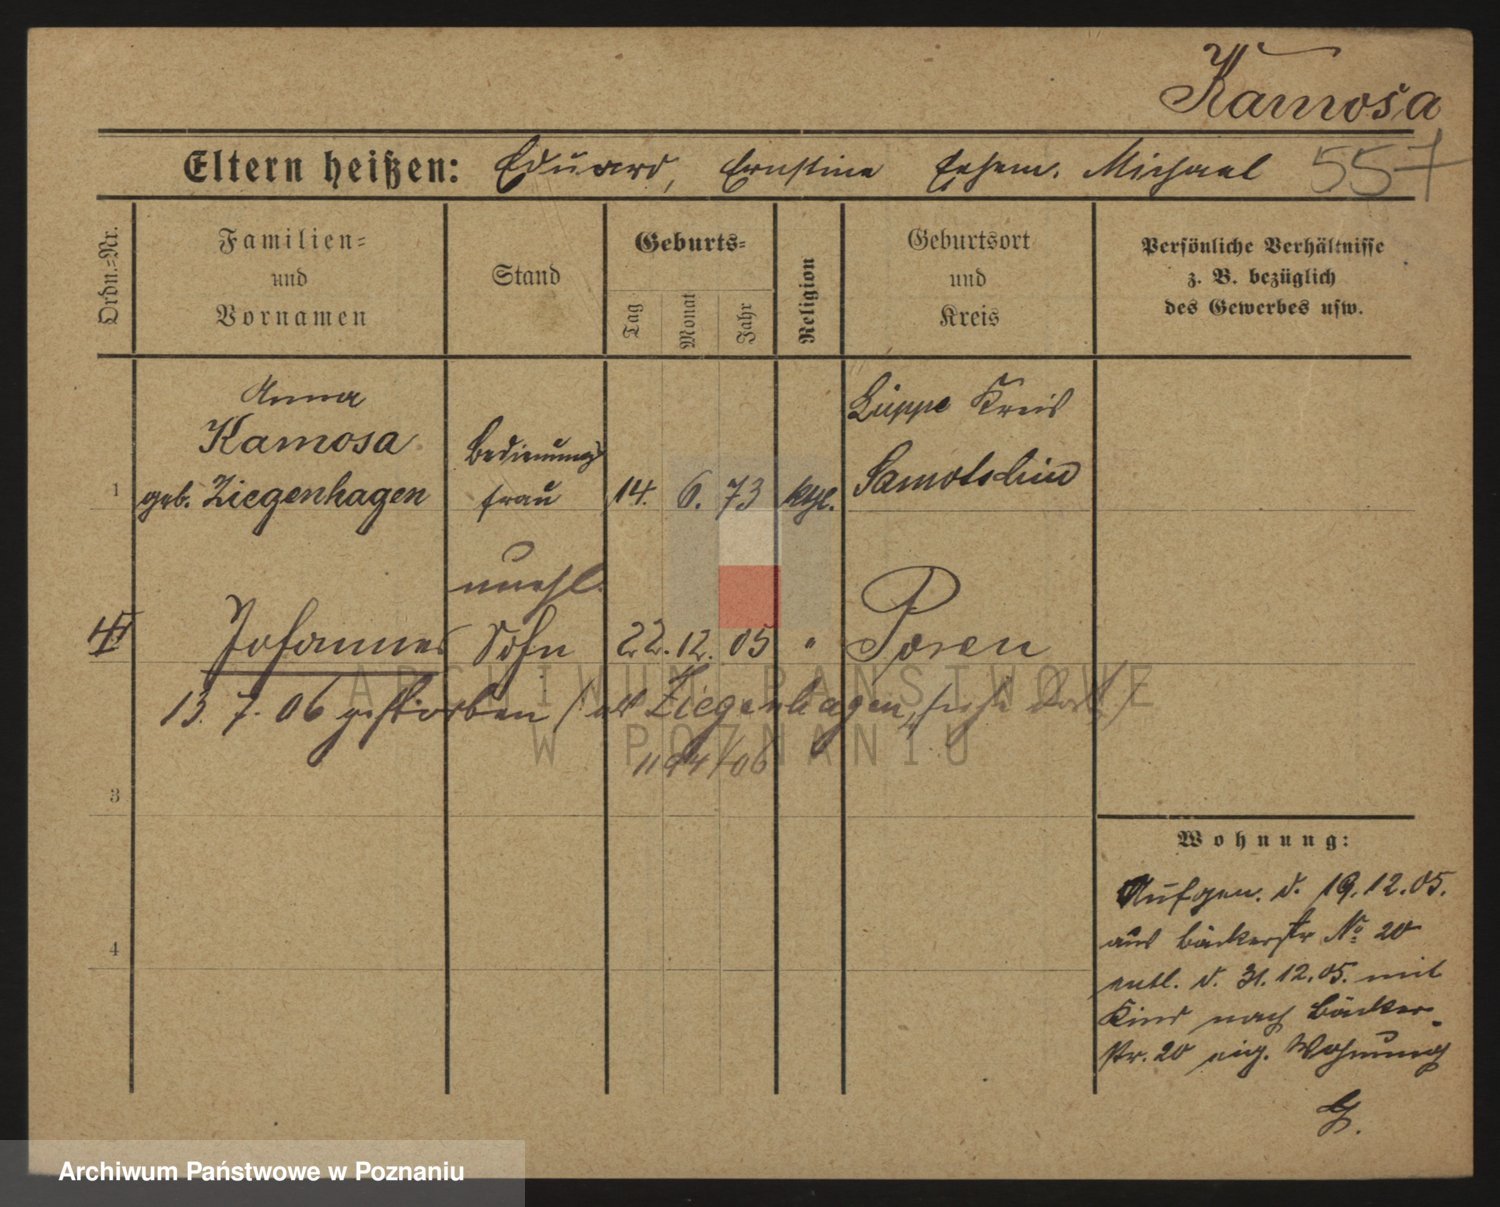 Kamosa
Eltern heißen: Eduard, Ernstine Ehem. Michael 557
Ordn.=Nr.
Familien=
und
Vornamen
Stand
Geburts=
Tag
Monat
Jahr
Religion
Geburtsort
und
Kreis
Persönliche Verhältnisse
z. B. bezüglich
des Gewerbes usw.
1
Anna
Kamosa
geb. Ziegenhagen
Bedienungs
frau
14. 6. 73 kth.
Kreis
Samotschin
unehl.
Johannes Sohn 22. 12. 05 " Posen
13. 7. 06 gestorben / als Ziegenhagen, siehe dort /
1194/06
3
4
Wohnung:
Aufgen. d. 19. 12. 05.
aus Bäckerstr No 20
entl. d. 31. 12. 05. mit
Kind nach Bäcker-
str. 20 eig. Wohnung
ARCHIWUM PAŃSTWOWE
W POZNANIU
Archiwum Państwowe w Poznaniu